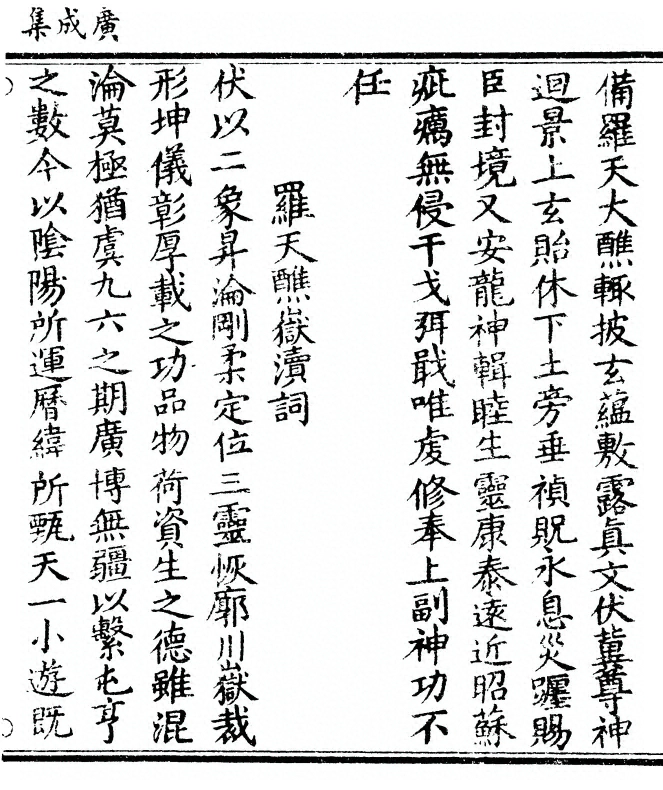 廣成集
備羅天大醮輙披玄蘊敷露真文伏冀尊神
迴景上玄貽休下土旁垂禎貺永息災躔賜
臣封境又安龍神輯睦生靈康泰遠近昭蘇
疵癘無侵干戈弭戢唯虔修奉上副神功不
任
羅天醮嶽瀆詞
伏以二象昇淪剛柔定位三靈恢廓川嶽裁
形坤儀彰厚載之功品物荷資生之德雖混
淪莫極猶虞九六之期廣博無疆以繫屯亨
之數今以陰陽所運曆緯所甄天一小遊既